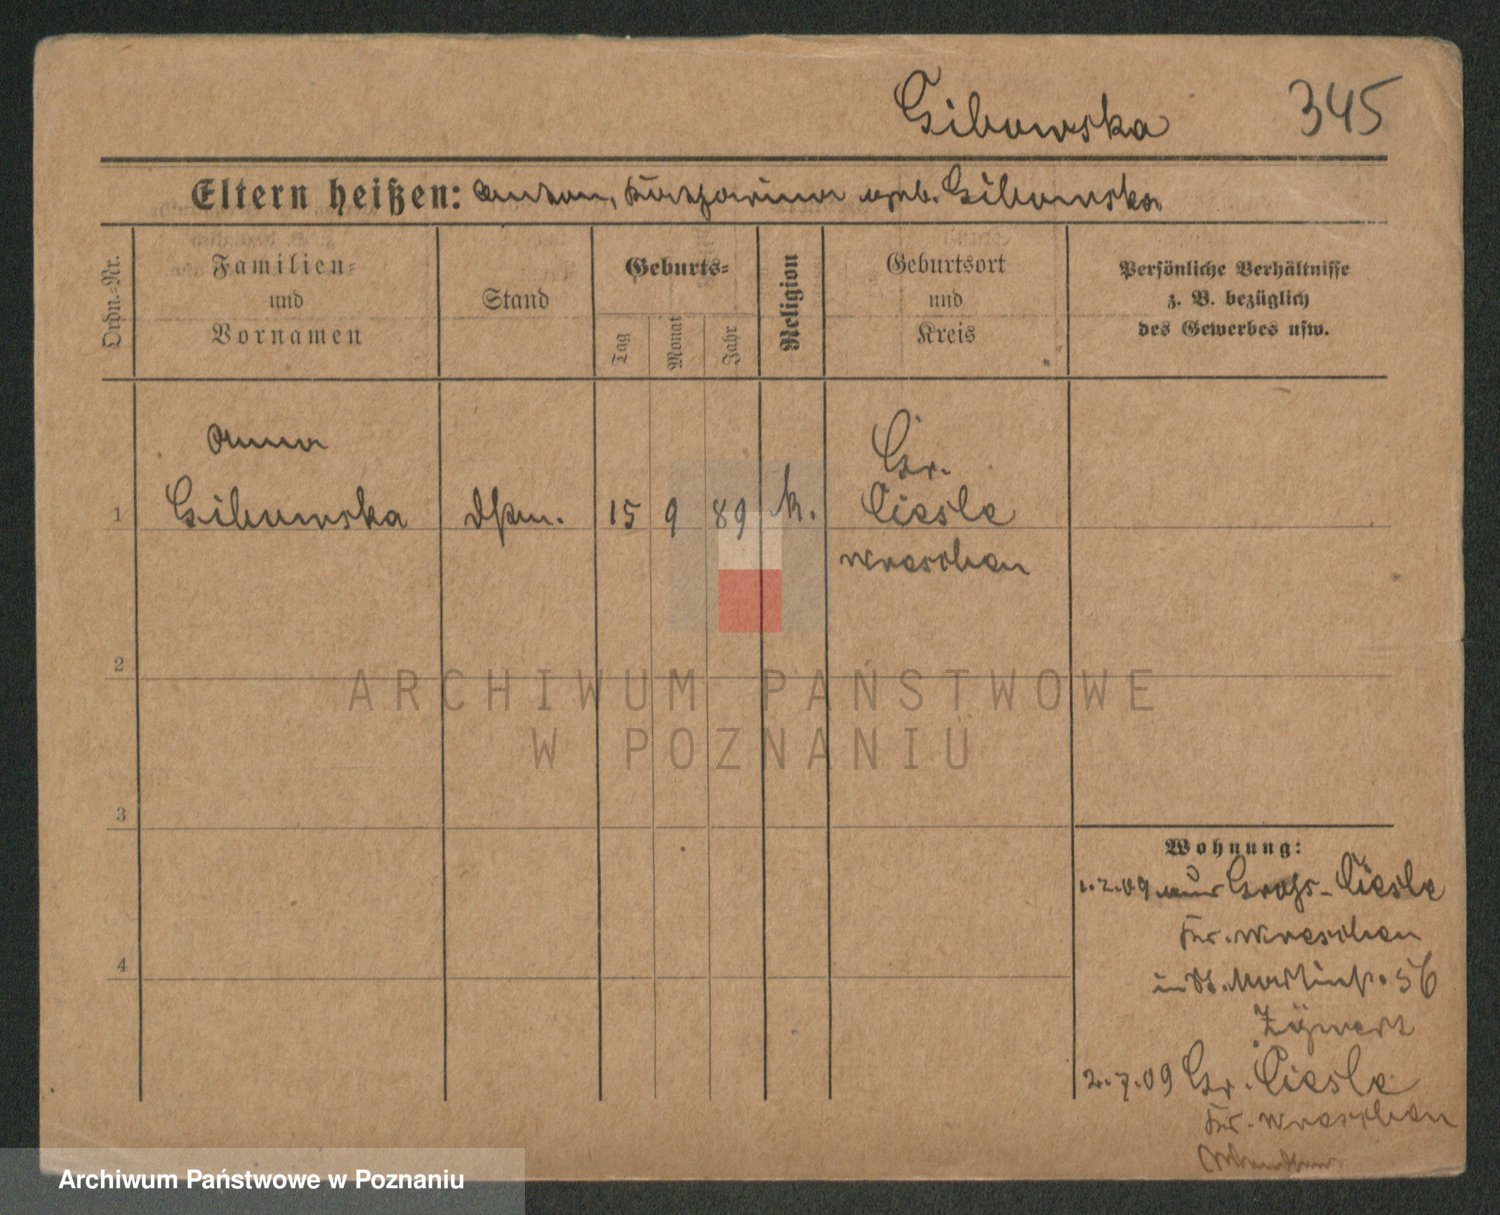 Gibowska 345
Eltern heißen: Anton, Katharina geb. Gibowska
Ordn.=Nr.
Familien=
und
Vornamen
Stand
Geburts=
Tag
Monat
Jahr
Religion
Geburtsort
und
Kreis
Persönliche Verhältnisse
z. B. bezüglich
des Gewerbes usw.
Anna Gr.
1 Gibowska 15 9 89 k. Ciesle
Wreschen
2
3
4
ARCHIWUM PAŃSTWOWE
W POZNANIU
Wohnung:
1.2.09 aus Gross-Ciesle
Kr. Wreschen
in St. Martinst. 56
2.7.09 Gr. Ciesle
Kr. Wreschen
Archiwum Państwowe w Poznaniu